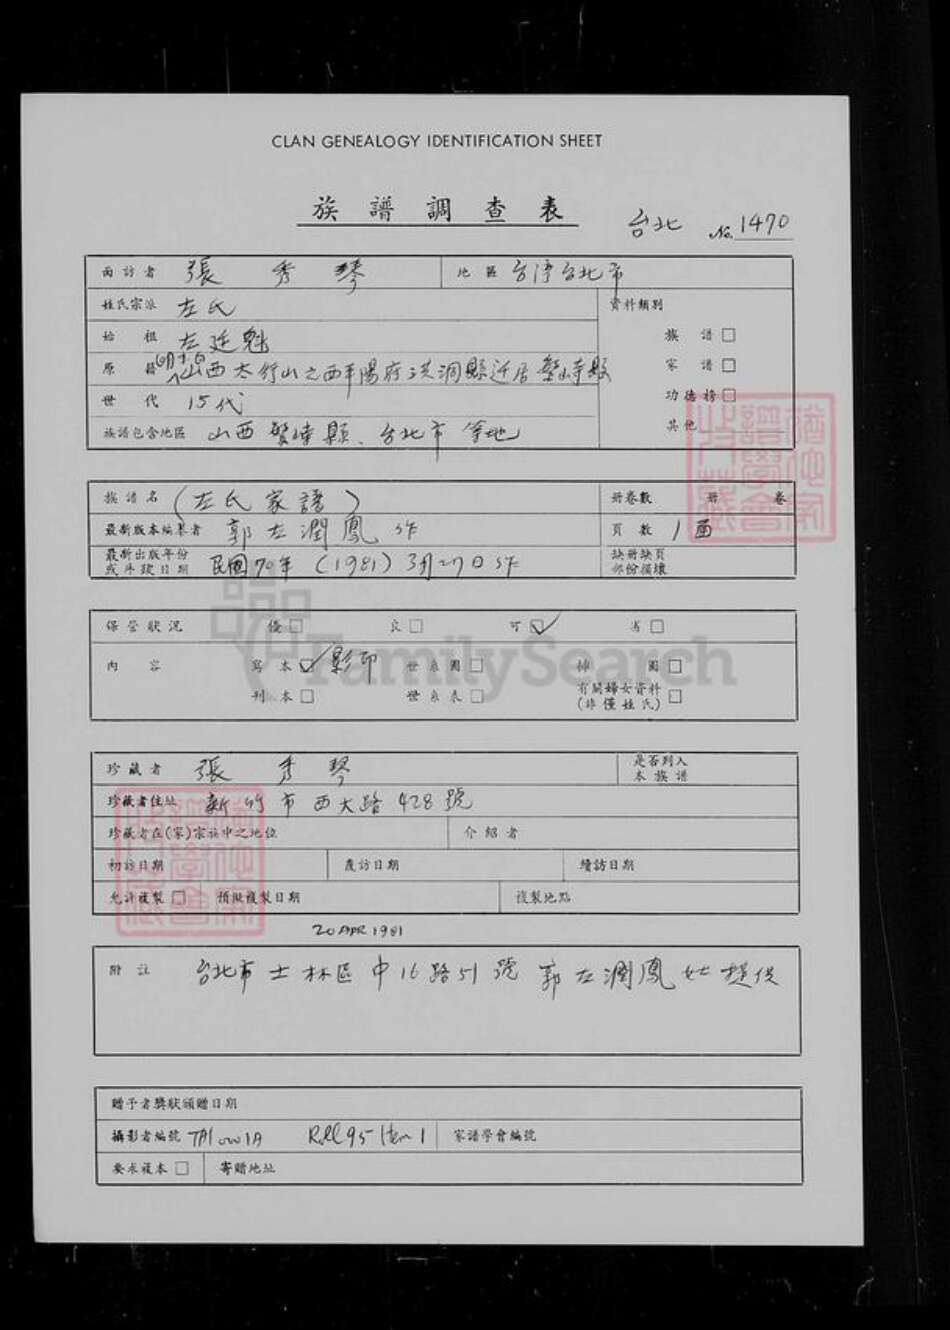 CLAN GENEALOGY IDENTIFICATION SHEET
族譜調查表
台北 No. 1470
面訪者 張秀琴 地區 台灣台北市
姓氏宗派 左氏 資料類別
始祖 左廷魁 族譜□
原籍 山西太行山之西平陽府洪洞縣迁居繁峙縣 家譜□
世代 15代 功德榜□
族譜包含地區 山西繁峙縣、台北市等地 其他
族譜名 (左氏家譜) 冊卷數 冊 卷
最新版本編纂者 郭左潤鳳 作 頁數 1面
最新出版年份或升建日期 民國70年 (1981) 3月27日作 缺冊缺頁部份損壞
保管狀況 優□ 良□ 可☑ 劣□
內容 寫本☑ 影印 世系圖□ 插圖□
刊本□ 世系表□ 有關婦女資料(非僅姓氏)□
FamilySearch
珍藏者 張秀琴 是否列入本族譜
珍藏者住址 新竹市西大路428號
珍藏者在(家)宗族中之地位 介紹者
初訪日期 覆訪日期 續訪日期
允許複製□ 預擬複製日期 複製地點
20 APR 1981
附註 台北市士林區中16路51號 郭左潤鳳女士提供
贈予者獎狀頒贈日期
攝影者編號 Roll 95 Item 1 家譜學會編號
要求複本□ 寄贈地址